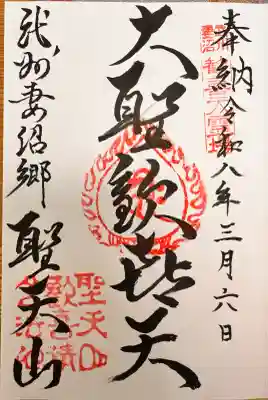 奉納 令和八年三月六日
大聖歓喜天
武州妻沼郷
聖天山
聖天山
歓喜院